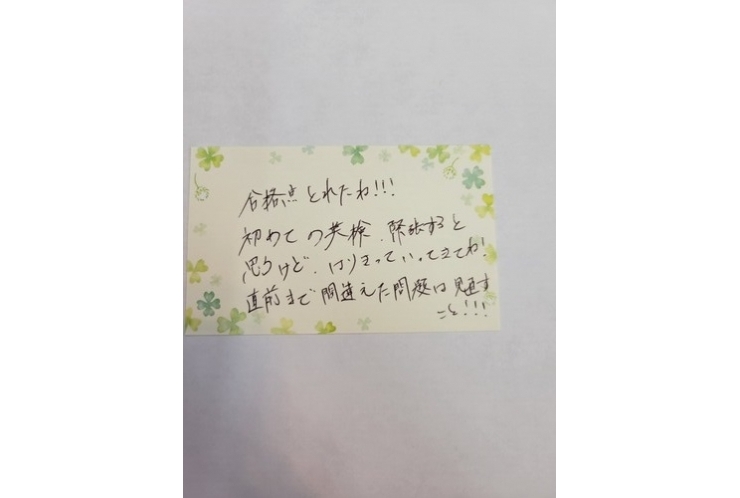 合格点とれたね!!!
初めての英検、緊張すると
思うけど、はりきっていってきてね!
直前まで間違えた問題は見直す
こと!!!